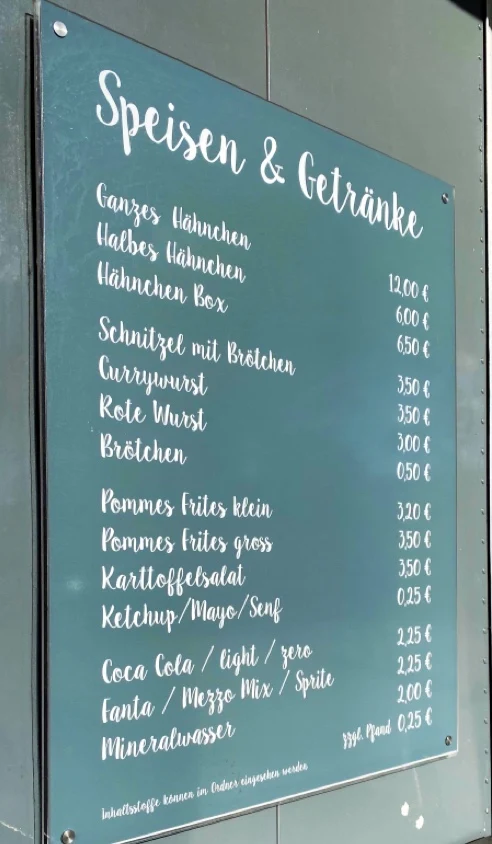 Speisen & Getränke
Ganzes Hähnchen 12,00 €
Halbes Hähnchen 6,00 €
Hähnchen Box 6,50 €
Schnitzel mit Brötchen 3,50 €
Currywurst 3,50 €
Rote Wurst 3,00 €
Brötchen 0,50 €
Pommes Frites klein 3,20 €
Pommes Frites gross 3,50 €
Karttoffelsalat 3,50 €
Ketchup/Mayo/Senf 0,25 €
Coca Cola / light / zero 2,25 €
Fanta / Mezzo Mix / Sprite 2,25 €
Mineralwasser 2,00 €
zzgl. Pfand 0,25 €
Inhaltsstoffe können im Ordner eingesehen werden